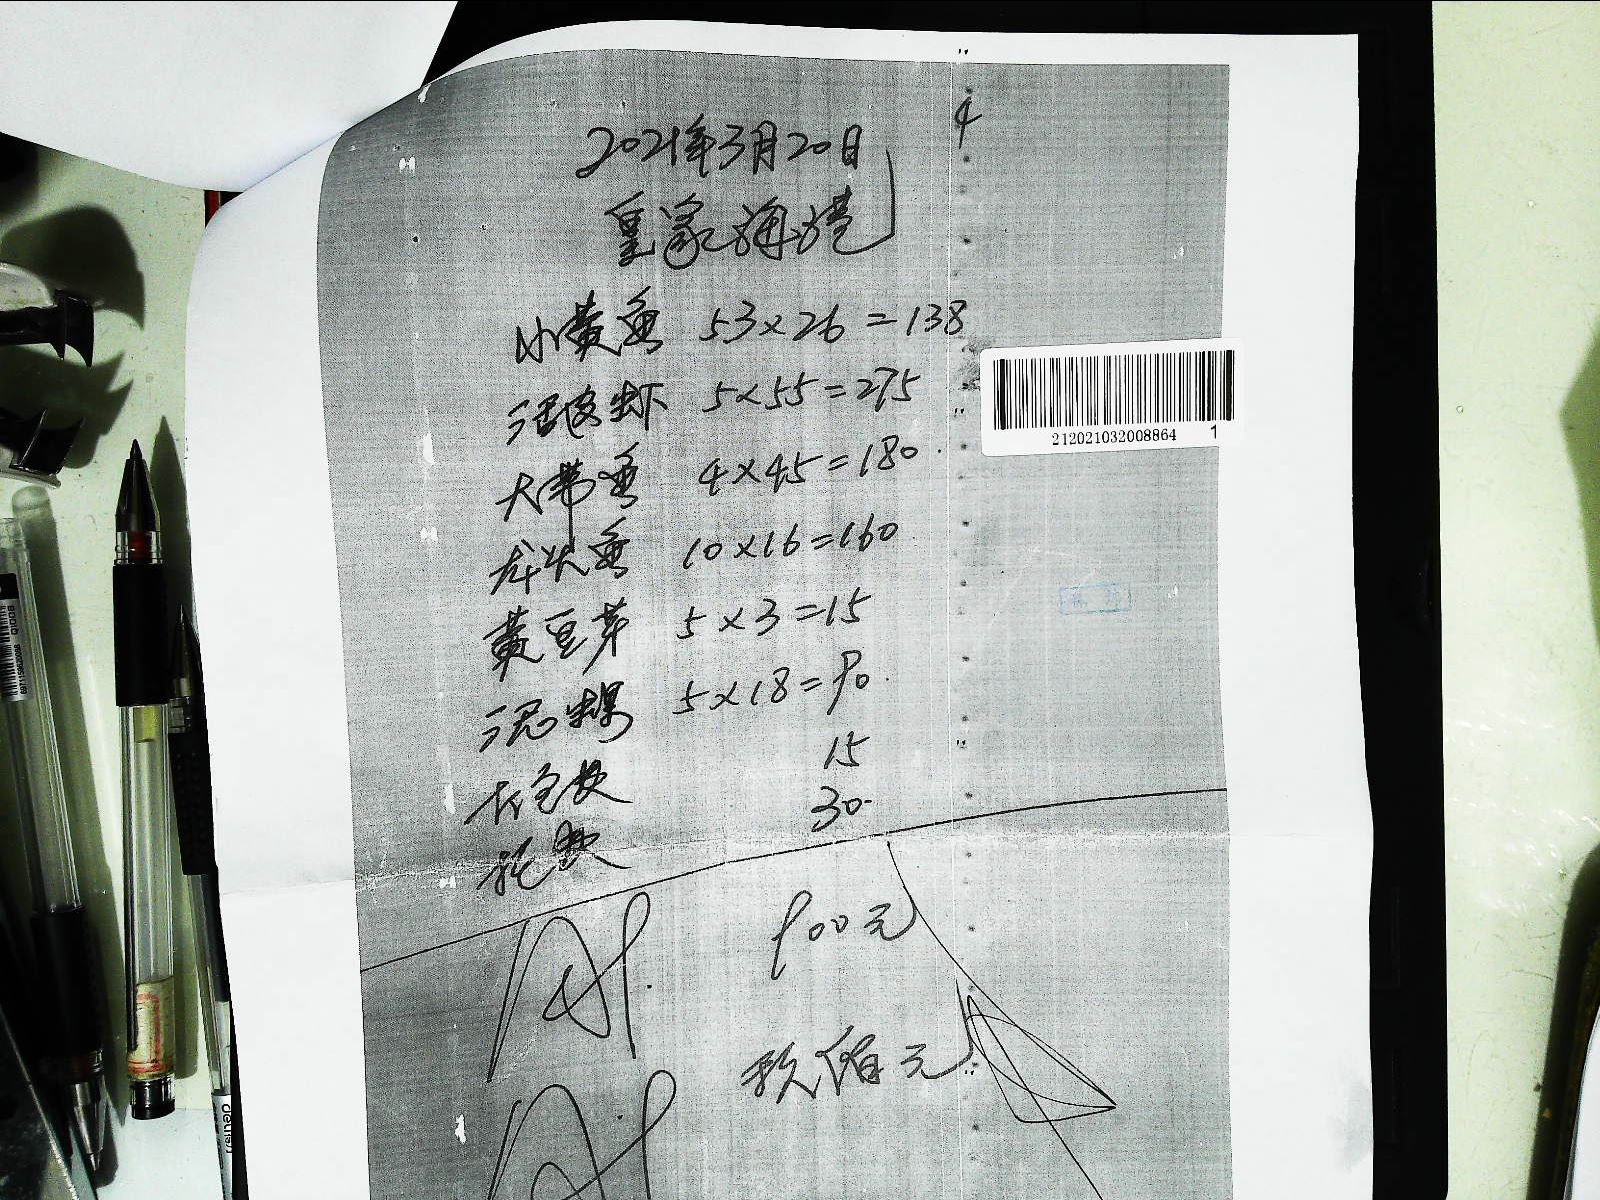 4
2021年3月20日
皇家海港
小黄鱼 53×26=138
活皮虾 5×55=275
大带鱼 4×45=180
龙头鱼 10×16=160
黄豆芽 5×3=15
泥螺 5×18=90
打包费 15
花费 30
900元
玖佰元
212021032008864 1
deli